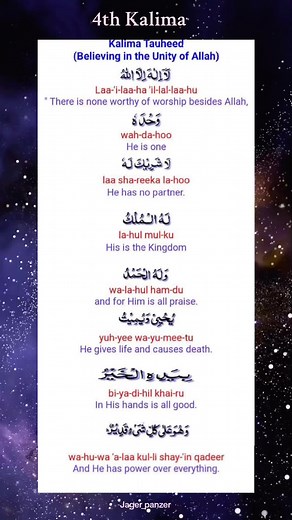 4th Kalima
Kalima Tauheed
(Believing in the Unity of Allah)
لَآ اِلٰهَ اِلَّا اللهُ
Laa-'i-laa-ha 'il-lal-laa-hu
" There is none worthy of worship besides Allah,
وَحْدَهٗ
wah-da-hoo
He is one
لَا شَرِيْكَ لَهٗ
laa sha-reeka la-hoo
He has no partner.
لَهُ الْمُلْكُ
la-hul mul-ku
His is the Kingdom
وَلَهُ الْحَمْدُ
wa-la-hul ham-du
and for Him is all praise.
يُحْيِيْ وَيُمِيْتُ
yuh-yee wa-yu-mee-tu
He gives life and causes death.
بِيَدِهِ الْخَيْرُ
bi-ya-di-hil khai-ru
In His hands is all good.
وَهُوَ عَلٰى كُلِّ شَیْءٍ قَدِيْرٌ
wa-hu-wa 'a-laa kul-li shay-'in qadeer
And He has power over everything.
Jager panzer